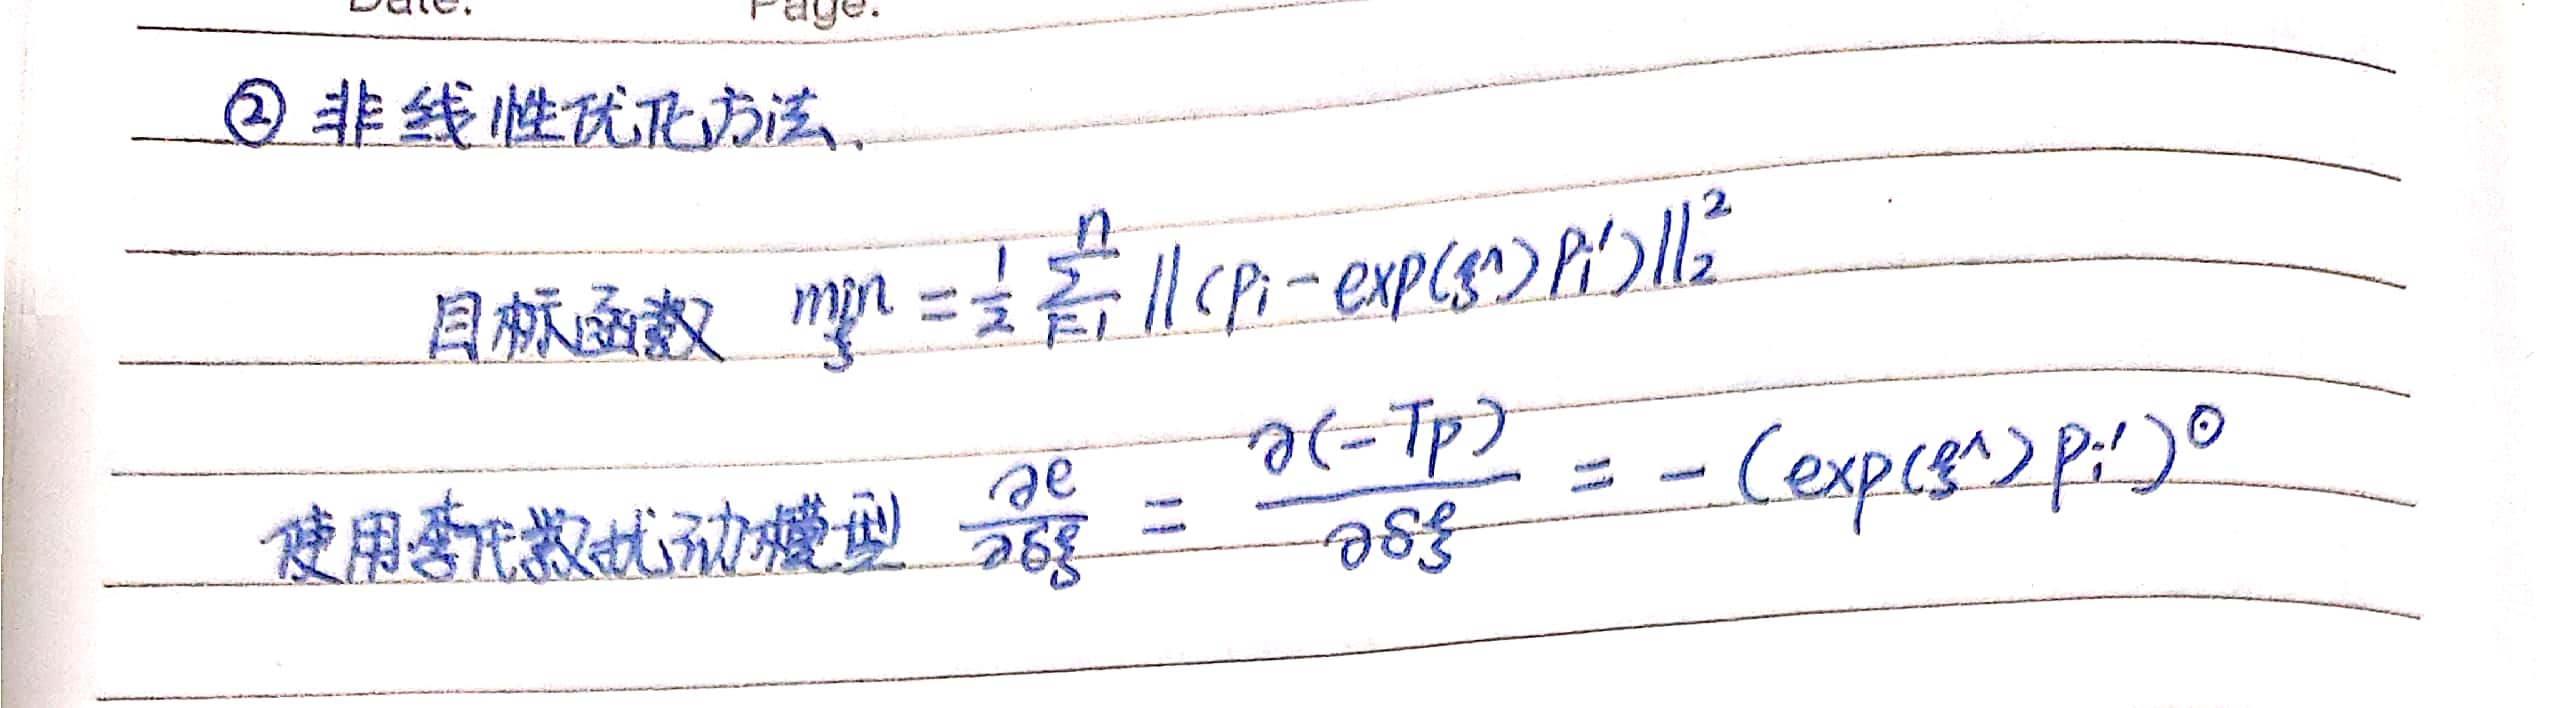 Date. Page.
② 非线性优化方法.
目标函数 min_ξ = 1/2 Σ_{i=1}^{n} ||(p_i - exp(ξ^)p_i')||_2^2
使用李代数扰动模型 ∂e/∂δξ = ∂(-Tp)/∂δξ = -(exp(ξ^)p_i')^⊙